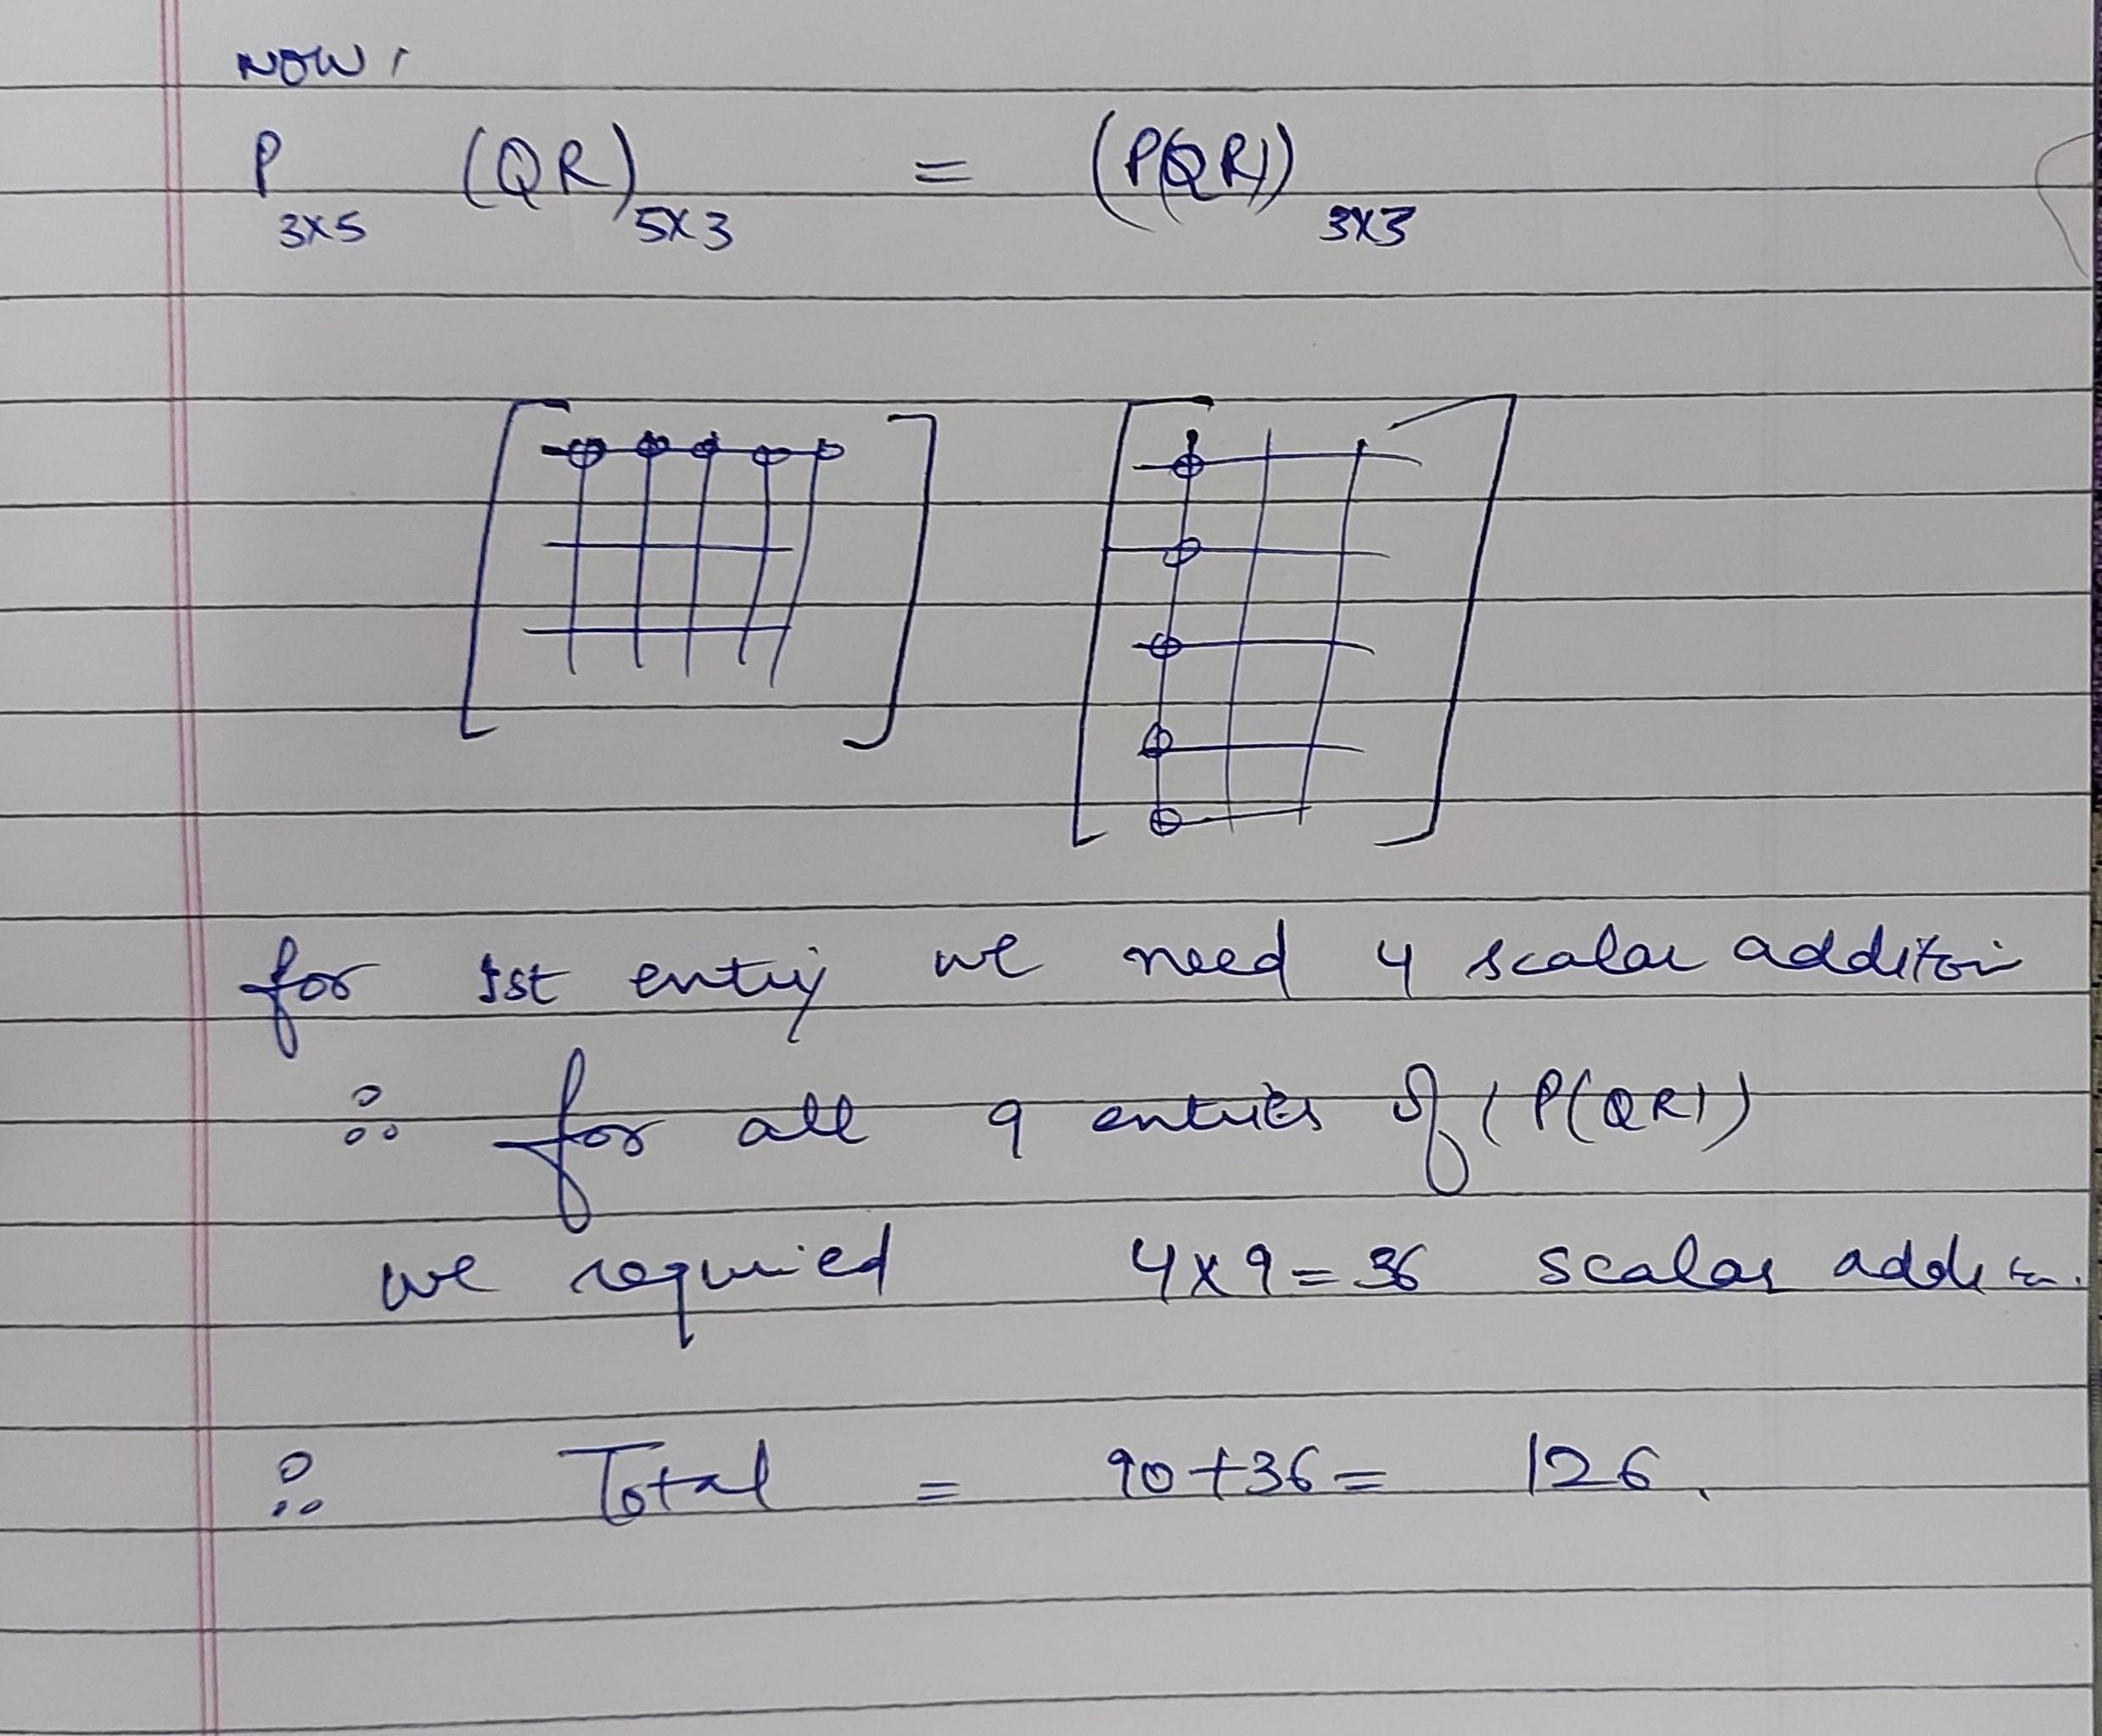 NOW,
P 3x5 (QR) 5x3 = (P(QR)) 3x3
for 1st entry we need 4 scalar addition
∴ for all 9 entries of (P(QR))
we requried 4x9=36 scalar addition.
∴ Total = 90+36= 126.